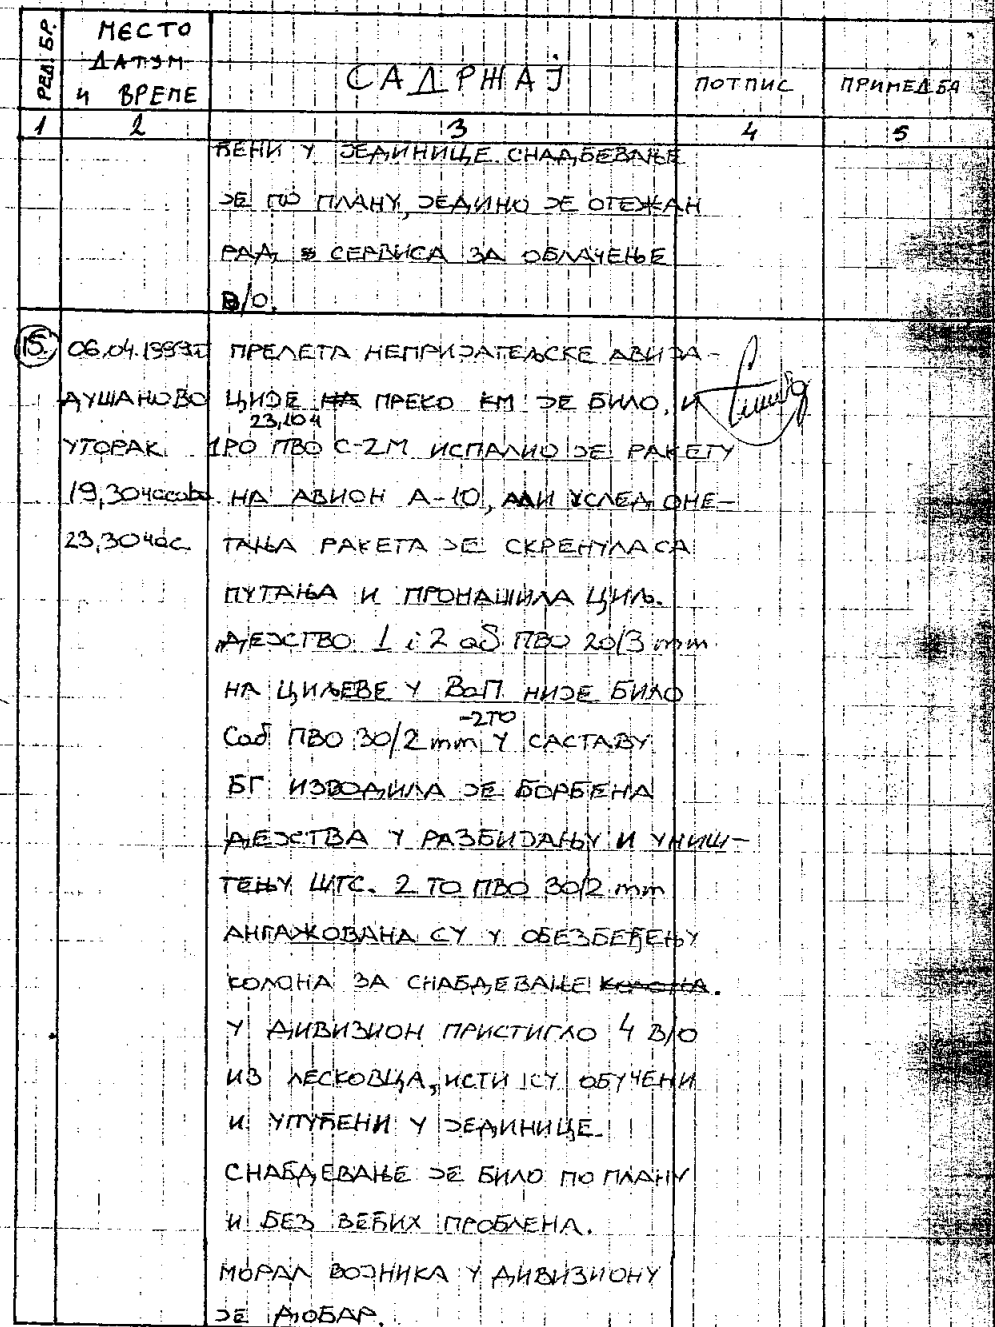 РЕД. БР.
МЕСТО
ДАТУМ
И ВРЕМЕ
САДРЖАЈ
ПОТПИС
ПРИМЕДБА
1 2 3 4 5
ЋЕНИ У ЈЕДИНИЦЕ. СНАДБЕВАЊЕ
ЈЕ ПО ПЛАНУ, ЈЕДИНО ЈЕ ОТЕЖАН
РАД СЕРВИСА ЗА ОБЛАЧЕЊЕ
В/О.
15. 06.04.1999Г ПРЕЛЕТА НЕПРИЈАТЕЉСКЕ АВИЈА-
ДУШАНОВО ЦИЈЕ НА ПРЕКО КМ ЈЕ БИЛО, И
23,10 ч
УТОРАК 1РО ПВО С-2М ИСПАЛИО ЈЕ РАКЕТУ
19,30 часова НА АВИОН А-10, АЛИ УСЛЕД ОМЕ-
23,30 час ТАЊА РАКЕТА ЈЕ СКРЕНУЛА СА
ПУТАЊА И ПРОМАШИЛА ЦИЉ.
ДЕЈСТВО 1 i 2 аб ПВО 20/3 mm
НА ЦИЉЕВЕ У ВаП НИЈЕ БИЛО
-2ТО
Саб ПВО 30/2 mm У САСТАВУ
БГ ИЗВОДИЛА ЈЕ БОРБЕНА
ДЕЈСТВА У РАЗБИЈАЊУ И УНИШ-
ТЕЊУ ШТС. 2 ТО ПВО 30/2 mm
АНГАЖОВАНА СУ У ОБЕЗБЕЂЕЊУ
КОЛОНА ЗА СНАБДЕВАЊЕ КОЛОНА.
У ДИВИЗИОН ПРИСТИГЛО 4 В/О
ИЗ ЛЕСКОВЦА, ИСТИ СУ ОБУЧЕНИ
И УПУЋЕНИ У ЈЕДИНИЦЕ.
СНАБДЕВАЊЕ ЈЕ БИЛО ПО ПЛАНУ
И БЕЗ ВЕЋИХ ПРОБЛЕМА.
МОРАЛ ВОЈНИКА У ДИВИЗИОНУ
ЈЕ ДОБАР.